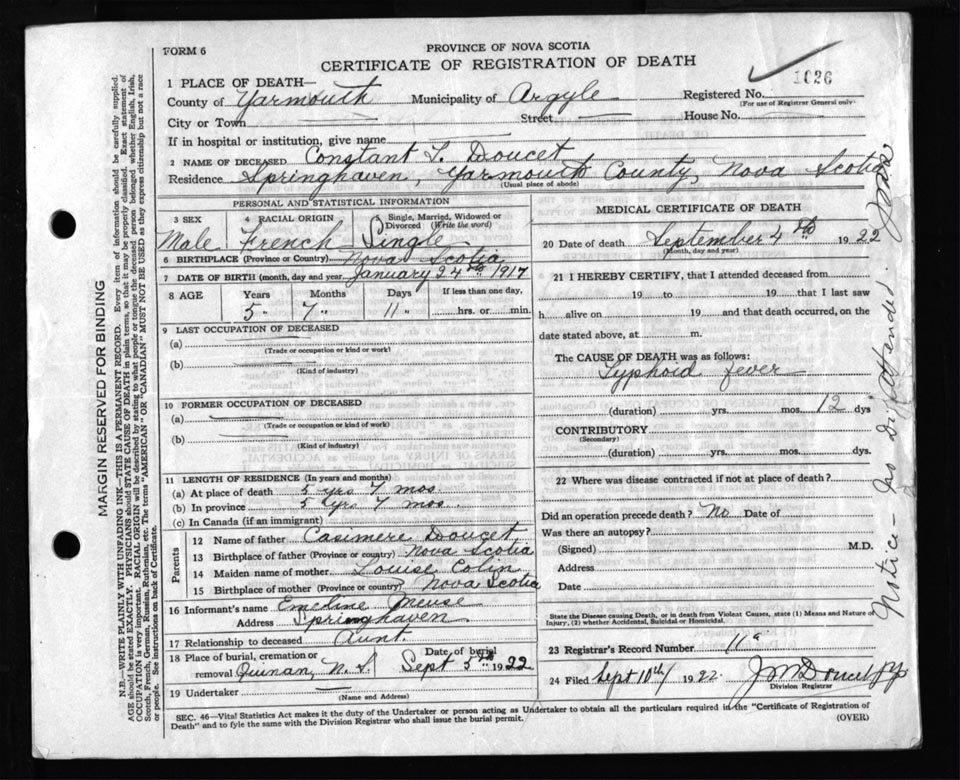 FORM 6
PROVINCE OF NOVA SCOTIA
CERTIFICATE OF REGISTRATION OF DEATH
1026
1 PLACE OF DEATH—
County of Yarmouth Municipality of Argyle Registered No.
(For use of Registrar General only)
City or Town Street House No.
If in hospital or institution, give name
2 NAME OF DECEASED Constant L. Doucet
Residence Springhaven, Yarmouth County, Nova Scotia
(Usual place of abode)
PERSONAL AND STATISTICAL INFORMATION
3 SEX 4 RACIAL ORIGIN Single, Married, Widowed or Divorced (Write the word)
Male French Single
6 BIRTHPLACE (Province or Country) Nova Scotia
7 DATE OF BIRTH (month, day and year) January 24th 1917
8 AGE Years Months Days If less than one day,
5 7 11 hrs. or min.
9 LAST OCCUPATION OF DECEASED
(a)
(Trade or occupation or kind or work)
(b)
(Kind of industry)
10 FORMER OCCUPATION OF DECEASED
(a)
(Trade or occupation or kind of work)
(b)
(Kind of industry)
11 LENGTH OF RESIDENCE (In years and months)
(a) At place of death 5 yrs 7 mos.
(b) In province 5 yrs 7 mos.
(c) In Canada (if an immigrant)
Parents
12 Name of father Casimere Doucet
13 Birthplace of father (Province or country) Nova Scotia
14 Maiden name of mother Louise Colin
15 Birthplace of mother (Province or country) Nova Scotia
16 Informant's name Emeline Meuse
Address Springhaven
17 Relationship to deceased Aunt.
18 Place of burial, cremation or removal Quinan, N.S. Date of burial Sept 5th 1922
19 Undertaker
(Name and Address)
MEDICAL CERTIFICATE OF DEATH
20 Date of death September 4th 1922
(Month, day and year)
21 I HEREBY CERTIFY, that I attended deceased from
19 to 19 that I last saw
h alive on 19 and that death occurred, on
date stated above, at m.
The CAUSE OF DEATH was as follows:
Typhoid fever
(duration) yrs. mos. 12 dys
CONTRIBUTORY
(Secondary)
(duration) yrs. mos. dys.
22 Where was disease contracted if not at place of death?
Did an operation precede death? No Date of
Was there an autopsy?
(Signed) M.D.
Address
Date
State the Disease causing Death, or in death from Violent Causes, state (1) Means and Nature of Injury, (2) whether Accidental, Suicidal or Homicidal.
23 Registrar's Record Number 11
24 Filed Sept 10th 1922. J M Doucet JP
Division Registrar
SEC. 46—Vital Statistics Act makes it the duty of the Undertaker or person acting as Undertaker to obtain all the particulars required in the "Certificate of Registration of
Death" and to fyle the same with the Division Registrar who shall issue the burial permit.
(OVER)
MARGIN RESERVED FOR BINDING
N.B.—WRITE PLAINLY WITH UNFADING INK—THIS IS A PERMANENT RECORD. Every item of information should be carefully supplied.
AGE should be stated EXACTLY. PHYSICIANS should STATE CAUSE OF DEATH in plain terms, so that it may be properly classified. Exact statement of
OCCUPATION is very important. RACIAL ORIGIN will be described by stating to what people or tongue the deceased person belonged whether English, Irish,
Scotch, French, German, Russian, Ruthenian, etc. The terms "AMERICAN" OR "CANADIAN" MUST NOT BE USED as they express citizenship but not a race
or people. See instructions on back of Certificate.
Notice - No Dr Attended.